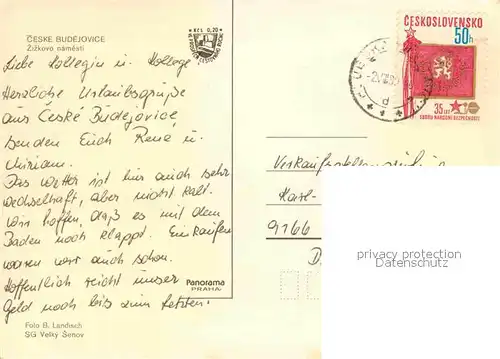 ČESKÉ BUDĚJOVICE
Žižkovo náměstí
KčS 0,20
ČESKOSLOVENSKO
50h
35 LET
SBORU NÁRODNÍ BEZPEČNOSTI
Liebe Kollegin u. Kollege
Herzliche Urlaubsgrüße
aus České Budějovice,
senden Euch René u.
Miriam.
Das Wetter ist hier auch sehr
wechselhaft, aber nicht kalt.
Wir hoffen, daß es mit dem
Baden noch klappt. Einkaufen
waren wir auch schon.
Hoffentlich reicht unser
Geld noch bis zum Letzten.
Karl-
9166
privacy protection
Datenschutz
Panorama
PRAHA
Foto B. Landisch
SG Velký Šenov